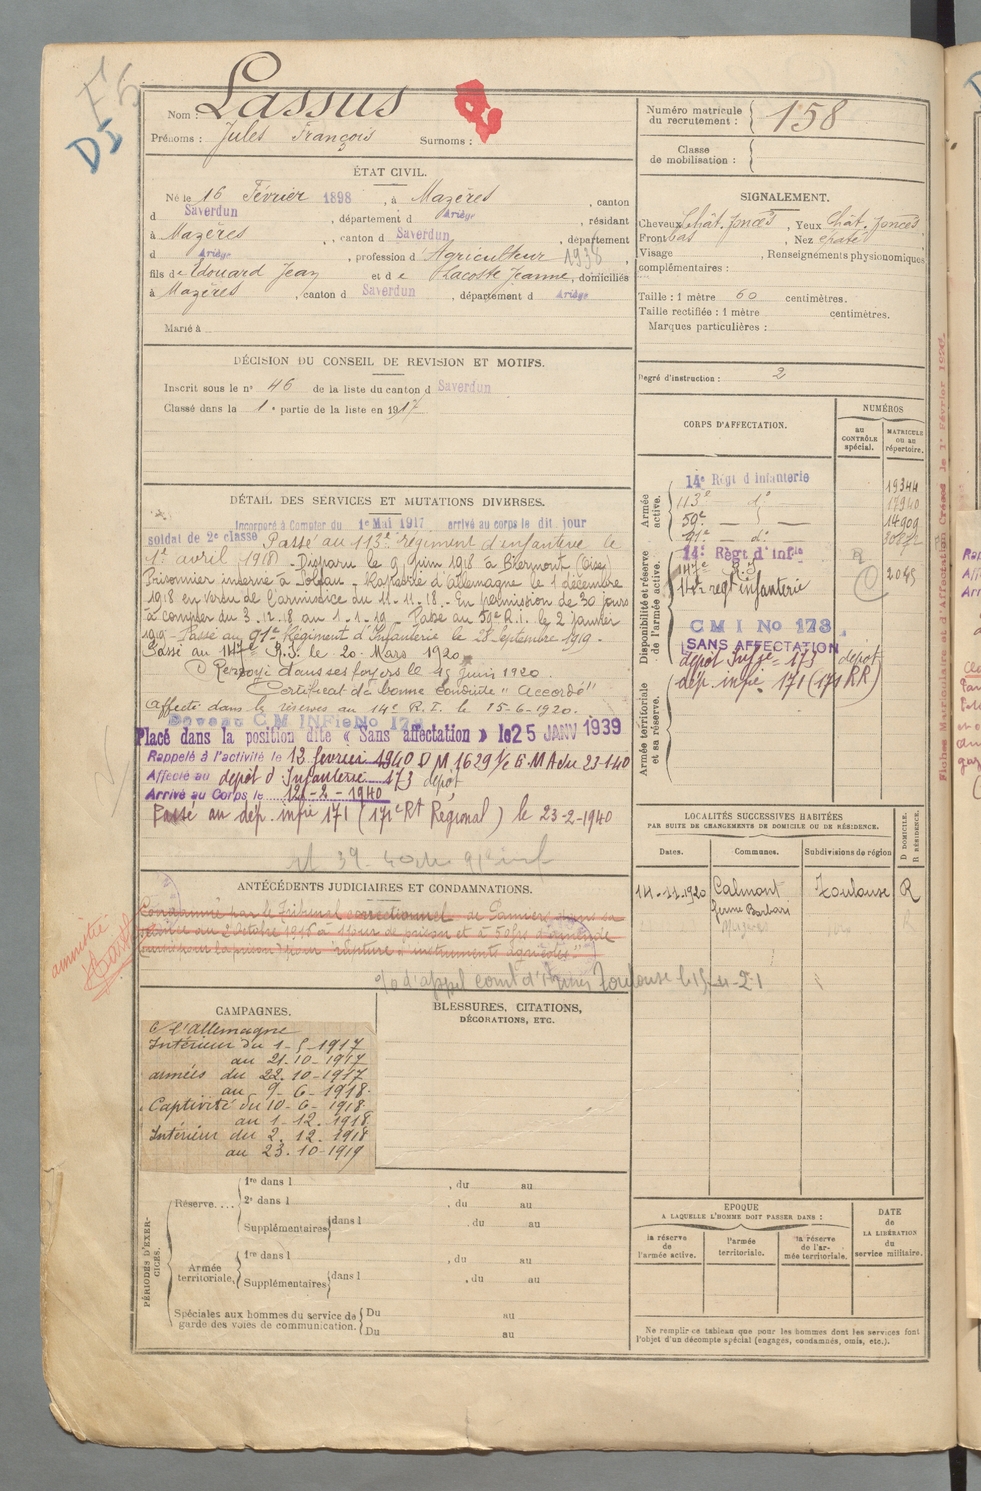 Nom : Lassus
Prénoms : Jules François Surnoms :
Numéro matricule du recrutement : 158
Classe de mobilisation :
ÉTAT CIVIL.
Né le 16 Février 1898, à Mazères, canton
d Saverdun, département d Ariège, résidant
à Mazères, canton d Saverdun, département
d Ariège, profession d Agriculteur 1938,
fils de Edouard Jean et de Lacoste Jeanne, domiciliés
à Mazères, canton d Saverdun, département d Ariège
Marié à
SIGNALEMENT.
Cheveux Chât. foncés, Yeux Chât. foncés
Front bas, Nez épaté
Visage , Renseignements physionomiques
complémentaires :
Taille : 1 mètre 60 centimètres.
Taille rectifiée : 1 mètre centimètres.
Marques particulières :
Degré d'instruction : 2
DÉCISION DU CONSEIL DE REVISION ET MOTIFS.
Inscrit sous le n° 46 de la liste du canton d Saverdun
Classé dans la 1e partie de la liste en 1917
DÉTAIL DES SERVICES ET MUTATIONS DIVERSES.
Incorporé à Compter du 1er Mai 1917 arrivé au corps le dit jour
soldat de 2e classe, Passé au 113e régiment d'infanterie le
1er avril 1918 - Disparu le 9 juin 1918 à Blermont (Oise)
Prisonnier interné à - Rapatrié d'Allemagne le 1 décembre
1918 en vertu de l'armistice du 11-11-18. En permission de 30 jours
à compter du 3.12.18 au 1-1-19 Passé au 59e R.I. le 2 janvier
1919 - Passé au 91e Régiment d'Infanterie le 21 septembre 1919.
Passé au 147e R.I. le 20 Mars 1920
Renvoyé dans ses foyers le 15 juin 1920.
Certificat de bonne conduite "Accordé"
affecté dans la réserve au 14e R.I. le 15-6-1920.
C M INFie No 173
Placé dans la position dite « Sans affectation » le 25 JANV 1939
Rappelé à l'activité le 12 février 1940 D M 1629 1/c E M A du 23-1-40
Affecté au dépôt d'Infanterie 173 dépôt
Arrivé au Corps le 121-2-1940
Passé au dép. infie 171 (171e Rt Régional) le 23-2-1940
CORPS D'AFFECTATION.
NUMÉROS
au CONTRÔLE spécial.
MATRICULE ou au répertoire.
Armée active.
14e Régt d'infanterie 19344
113e do
59e — do — 14909
91e — do
Disponibilité et réserve de l'armée active.
14e Régt d'infie R
147e R.I. 2045
14e regt infanterie
Armée territoriale et sa réserve.
C M I No 173
SANS AFFECTATION
dépôt Inffie 173 dépôt
dép. infie 171 (171 RR)
LOCALITÉS SUCCESSIVES HABITÉES
PAR SUITE DE CHANGEMENTS DE DOMICILE OU DE RÉSIDENCE.
Dates. Communes. Subdivisions de région D DOMICILE. R RÉSIDENCE.
14-11-1920 Calmont Toulouse R
ferme Barbari
ANTÉCÉDENTS JUDICIAIRES ET CONDAMNATIONS.
amnistié
Condamné par le Tribunal correctionnel de Pamiers
CAMPAGNES.
C. l'Allemagne
Intérieur du 1-5-1917
au 21-10-1917
armées du 22.10-1917
au 9-6-1918.
Captivité du 10-6-1918
au 1-12.1918
Intérieur du 2.12.1918
au 23.10-1919
BLESSURES, CITATIONS,
DÉCORATIONS, ETC.
PÉRIODES D'EXERCICES.
Réserve....
1re dans l , du au
2e dans l , du au
Supplémentaires dans l , du au
Armée territoriale,
1re dans l , du au
Supplémentaires dans l , du au
Spéciales aux hommes du service de garde des voies de communication.
Du au
Du au
ÉPOQUE
A LAQUELLE L'HOMME DOIT PASSER DANS :
la réserve de l'armée active.
l'armée territoriale.
la réserve de l'armée territoriale.
DATE DE LA LIBÉRATION du service militaire.
Ne remplir ce tableau que pour les hommes dont les services font
l'objet d'un décompte spécial (engagés, condamnés, omis, etc.).